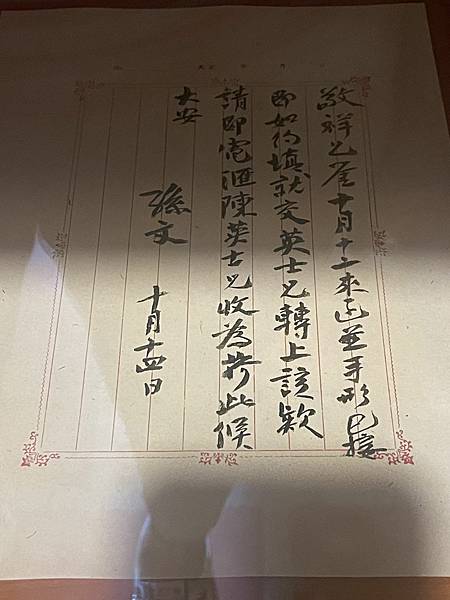 敬祥兄鉴十月十二來函並手形已接
即如約填就交英士兄轉上該欵
請即電滙陳英士兄收為荷此候
大安
孫文
十月十四日